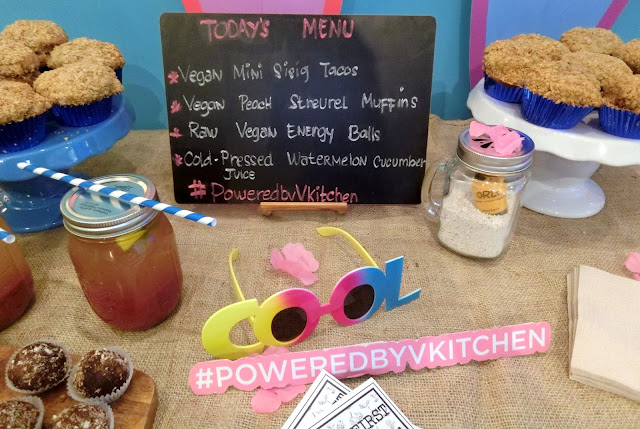 TODAY'S MENU
* VEGAN MINI SISIG TACOS
* VEGAN PEACH STREUREL MUFFINS
* RAW VEGAN ENERGY BALLS
* COLD-PRESSED WATERMELON CUCUMBER
JUICE
#PoweredbyVKitchen
COOL
#POWEREDBYVKITCHEN
FIRST